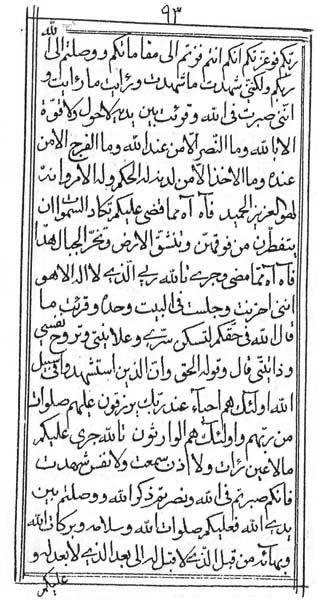 ٩٣
ربكم فوعزتكم انكم انتم فزتم الى مقاماتكم ووصلتم الى الله
ربكم ولكنى شهدت ما شهدت ورأيت ما رأيت و
اننى صبرت فى الله وقرئت بين يديه لاحول ولاقوة
الا بالله وما النصر الا من عند الله وما الفرج الا من
عنده وما الاخذ الا من لديه له الحكم وله الامر وانه
لهو العزيز الحميد فآه آه مما قضى عليكم تكاد السموات ان
يتفطرن من فوقهن وتنشق الارض وتخر الجبال هدا
فآه آه مما مضى وجرى تالله ربى الذى لا اله الا هو
اننى احزنت وجلست فى البيت وحده وقرئت ما
قال الله فى حقكم لتسكن سرى وعلانيتى وتروح نفسى
وذاتيتى قال وقوله الحق وان الذين استشهدوا فى سبيل
الله اولئك هم احياء عند ربك يرزقون عليهم صلوات
من ربهم واولئك هم الوارثون تالله جرى عليكم
ما لا عين رأت ولا اذن سمعت ولا نفس شهدت
فانكم صبرتم فى الله ونصرتم ذكر الله ووصلتم بين
يدى الله فعليكم صلوات الله وسلامه وبركات الله
وبهائه من قبل الذى لا قبل له الى بعد الذى لا بعد له و
عليكم